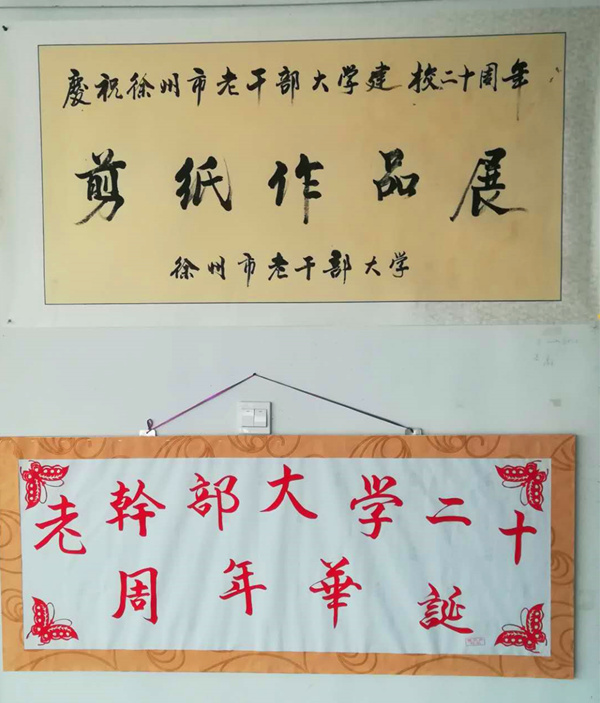 慶祝徐州市老干部大学建校二十周年
剪纸作品展
徐州市老干部大学
老幹部大学二十
周年華誕